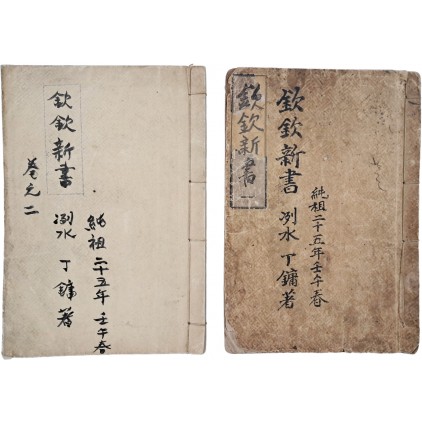 純祖二十五年壬午春
欽欽新書 冽水 丁鏞著
欽欽新書 一
純祖 二十五年 壬午春
欽欽新書 冽水 丁鏞著
卷之二